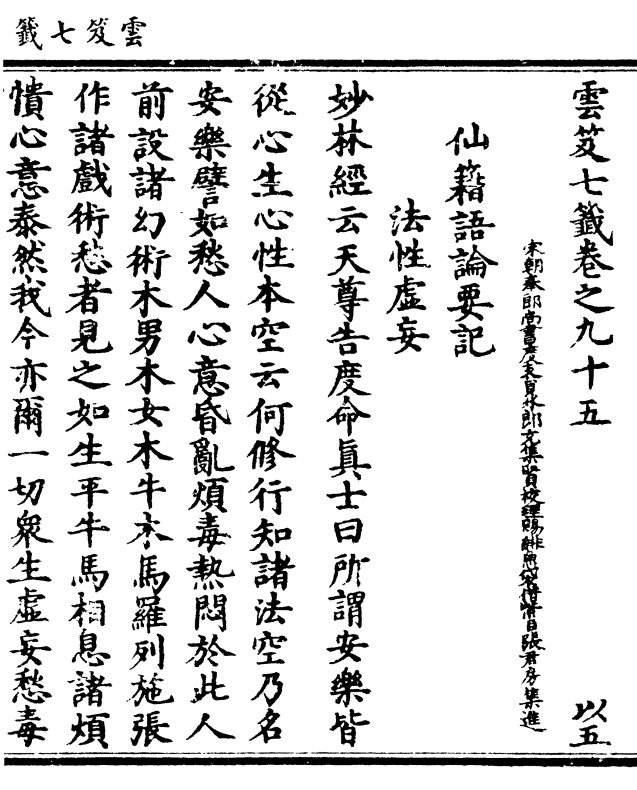 雲笈七籤
雲笈七籤卷之九十五
以五
宋朝奉郎尚書度支員外郎充集賢校理賜緋魚袋借紫臣張君房集進
仙籍語論要記
法性虛妄
妙林經云天尊告度命真士曰所謂安樂皆
從心生心性本空云何修行知諸法空乃名
安樂譬如愁人心意昏亂煩毒熱悶於此人
前設諸幻術木男木女木牛木馬羅列施張
作諸戲術愁者見之如生平牛馬相息諸煩
憒心意泰然我今亦爾一切衆生虛妄愁毒